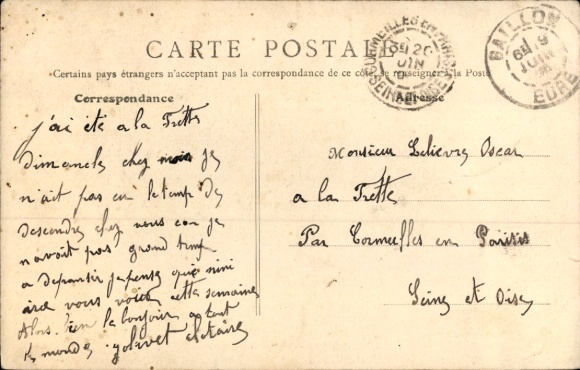 CARTE POSTALE
Certains pays étrangers n'acceptant pas la correspondance de ce côté, se renseigner à la Poste
Correspondance
Adresse
CORMEILLES EN PARISIS
SEINE ET OISE
JUIN
GAILLON
JUIN
EURE
j'ai été a la Frette
dimanche chez je
n'ait pas eu le temp de
descendre chez vous car je
n'avoit pas grand temp
a depanser je pense que
vous voir cette semaine
Alors bien le bonjour a tout
le monde
Monsieur Lelievre Oscar
a la Frette
Par Cormeilles en Parisis
Seine et Oise